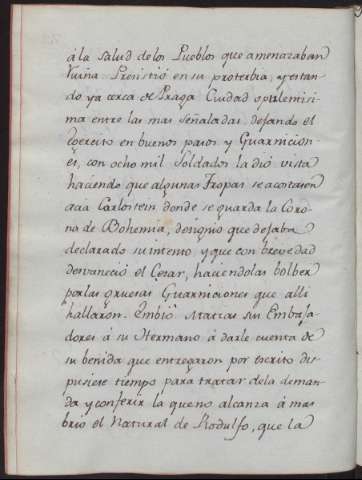 á la salud de los Pueblos que amenazaban
ruina Presistió en su proterbia, y estan-
do ya cerca de Praga Ciudad opulentisi-
ma entre las mas señaladas, dejando el
Exercito en buenos pasos y Guarnicion-
es, con ocho mil Soldados la dió vista
haciendo que algunas Tropas se acostasen
acia Carlostein donde se guarda la Coro-
na de Bohemia, designio que dejaba
declarado su intento y que con brevedad
desvaneció el Cesar, haciendolas bolber
por las gruesas Guarniciones que alli
hallaron. Embió Matias sus Embaja-
dores á su Hermano á darle cuenta de
su benida que entregaron por escrito dis-
pusiese tiempo para tratar de la deman-
da y conferir la que no alcanza á mas
brio el Natural de Rodulfo, que la